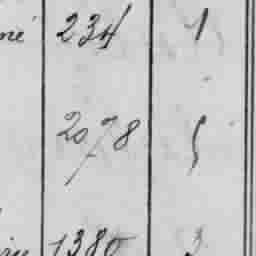 né 234 1
2078 5
1380 3